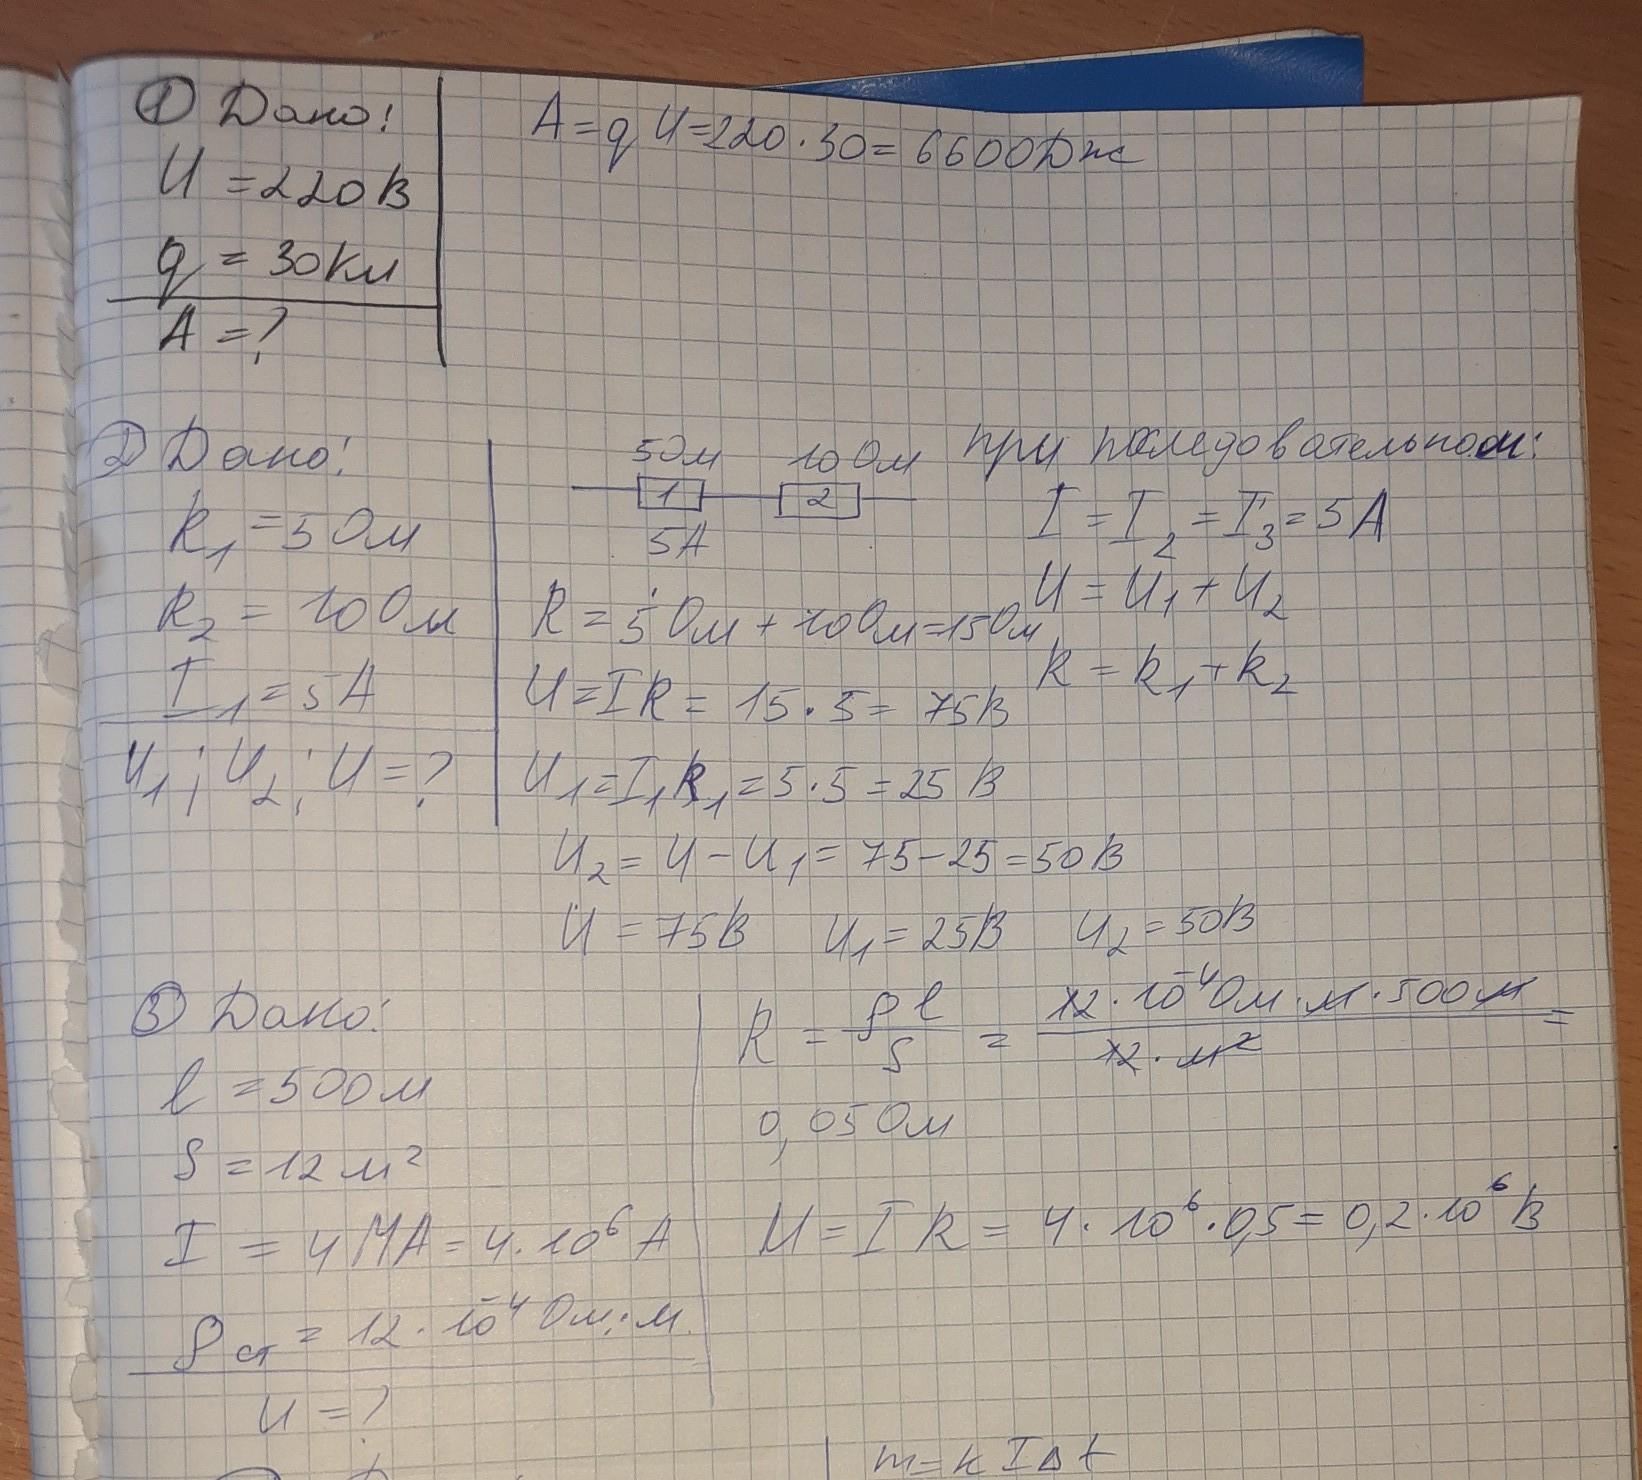 ① Дано:
U = 220 В
q = 30 Кл
A = ?
A = q U = 220 · 30 = 6600 Дж
② Дано:
R₁ = 5 Ом
R₂ = 10 Ом
I₁ = 5 А
U₁; U₂; U = ?
5 Ом 10 Ом
1 2
5А
при последовательном:
I = I₂ = I₃ = 5 А
U = U₁ + U₂
R = R₁ + R₂
R = 5 Ом + 10 Ом = 15 Ом
U = I R = 15 · 5 = 75 В
U₁ = I₁R₁ = 5 · 5 = 25 В
U₂ = U - U₁ = 75 - 25 = 50 В
U = 75 В U₁ = 25 В U₂ = 50 В
③ Дано:
l = 500 м
S = 12 м²
I = 4 МА = 4 · 10⁶ А
ρ ст = 12 · 10⁻⁴ Ом · м
U = ?
R = ρ l / S = 12 · 10⁻⁴ Ом · м · 500 м / 12 · м² =
0,05 Ом
U = I R = 4 · 10⁶ · 0,5 = 0,2 · 10⁶ В
m = k I Δ t